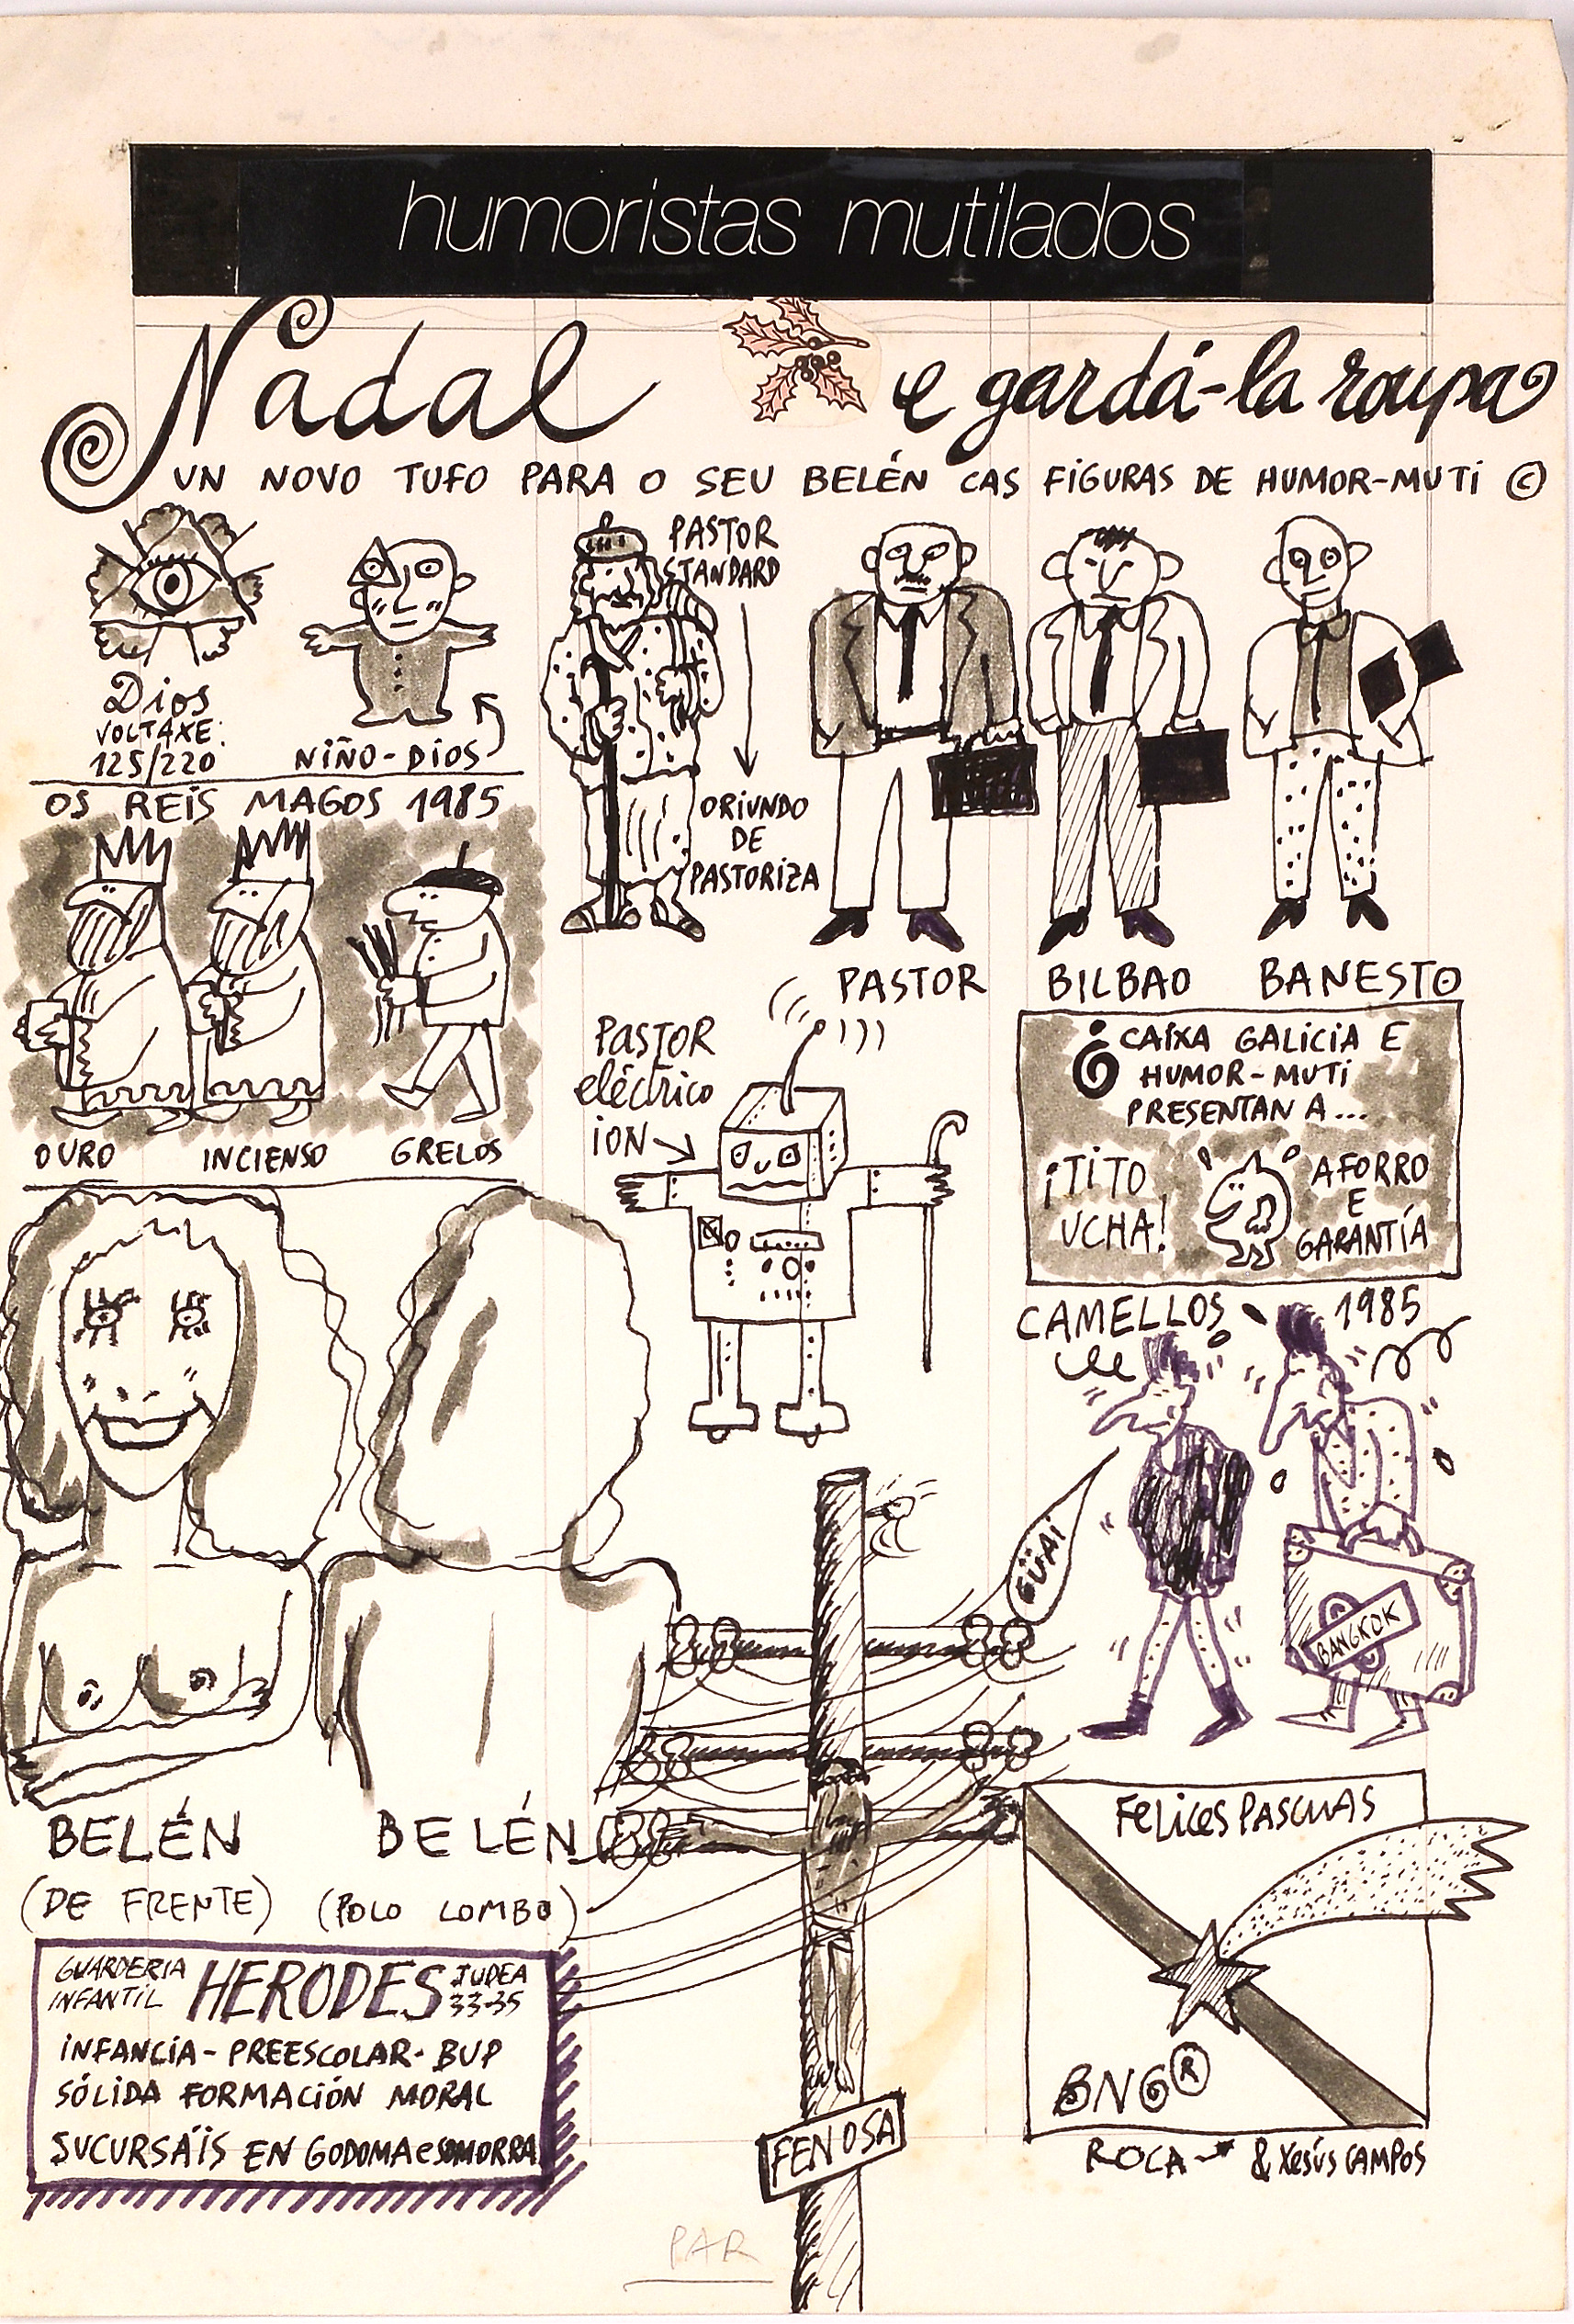 humoristas mutilados
Nadal e gardá-la roupa
UN NOVO TUFO PARA O SEU BELÉN CAS FIGURAS DE HUMOR-MUTI ©
Dios
VOLTAXE:
125/220
NIÑO-DIOS
PASTOR
STANDARD
ORIUNDO
DE
PASTORIZA
PASTOR
BILBAO
BANESTO
OS REIS MAGOS 1985
OURO
INCIENSO
GRELOS
PASTOR
eléctrico
ION
CAIXA GALICIA E
HUMOR-MUTI
PRESENTAN A...
¡TITO
UCHA!
AFORRO
E
GARANTÍA
CAMELLOS 1985
GÜAI
BANGKOK
BELÉN
(DE FRENTE)
BELÉN
(POLO LOMBO)
GUARDERIA
INFANTIL
HERODES
JUDEA
33-35
INFANCIA-PREESCOLAR-BUP
SÓLIDA FORMACIÓN MORAL
SUCURSAIS EN GODOMA e SOMORRA
FENOSA
FELICES PASCUAS
BNG®
ROCA & XESÚS CAMPOS
PAR